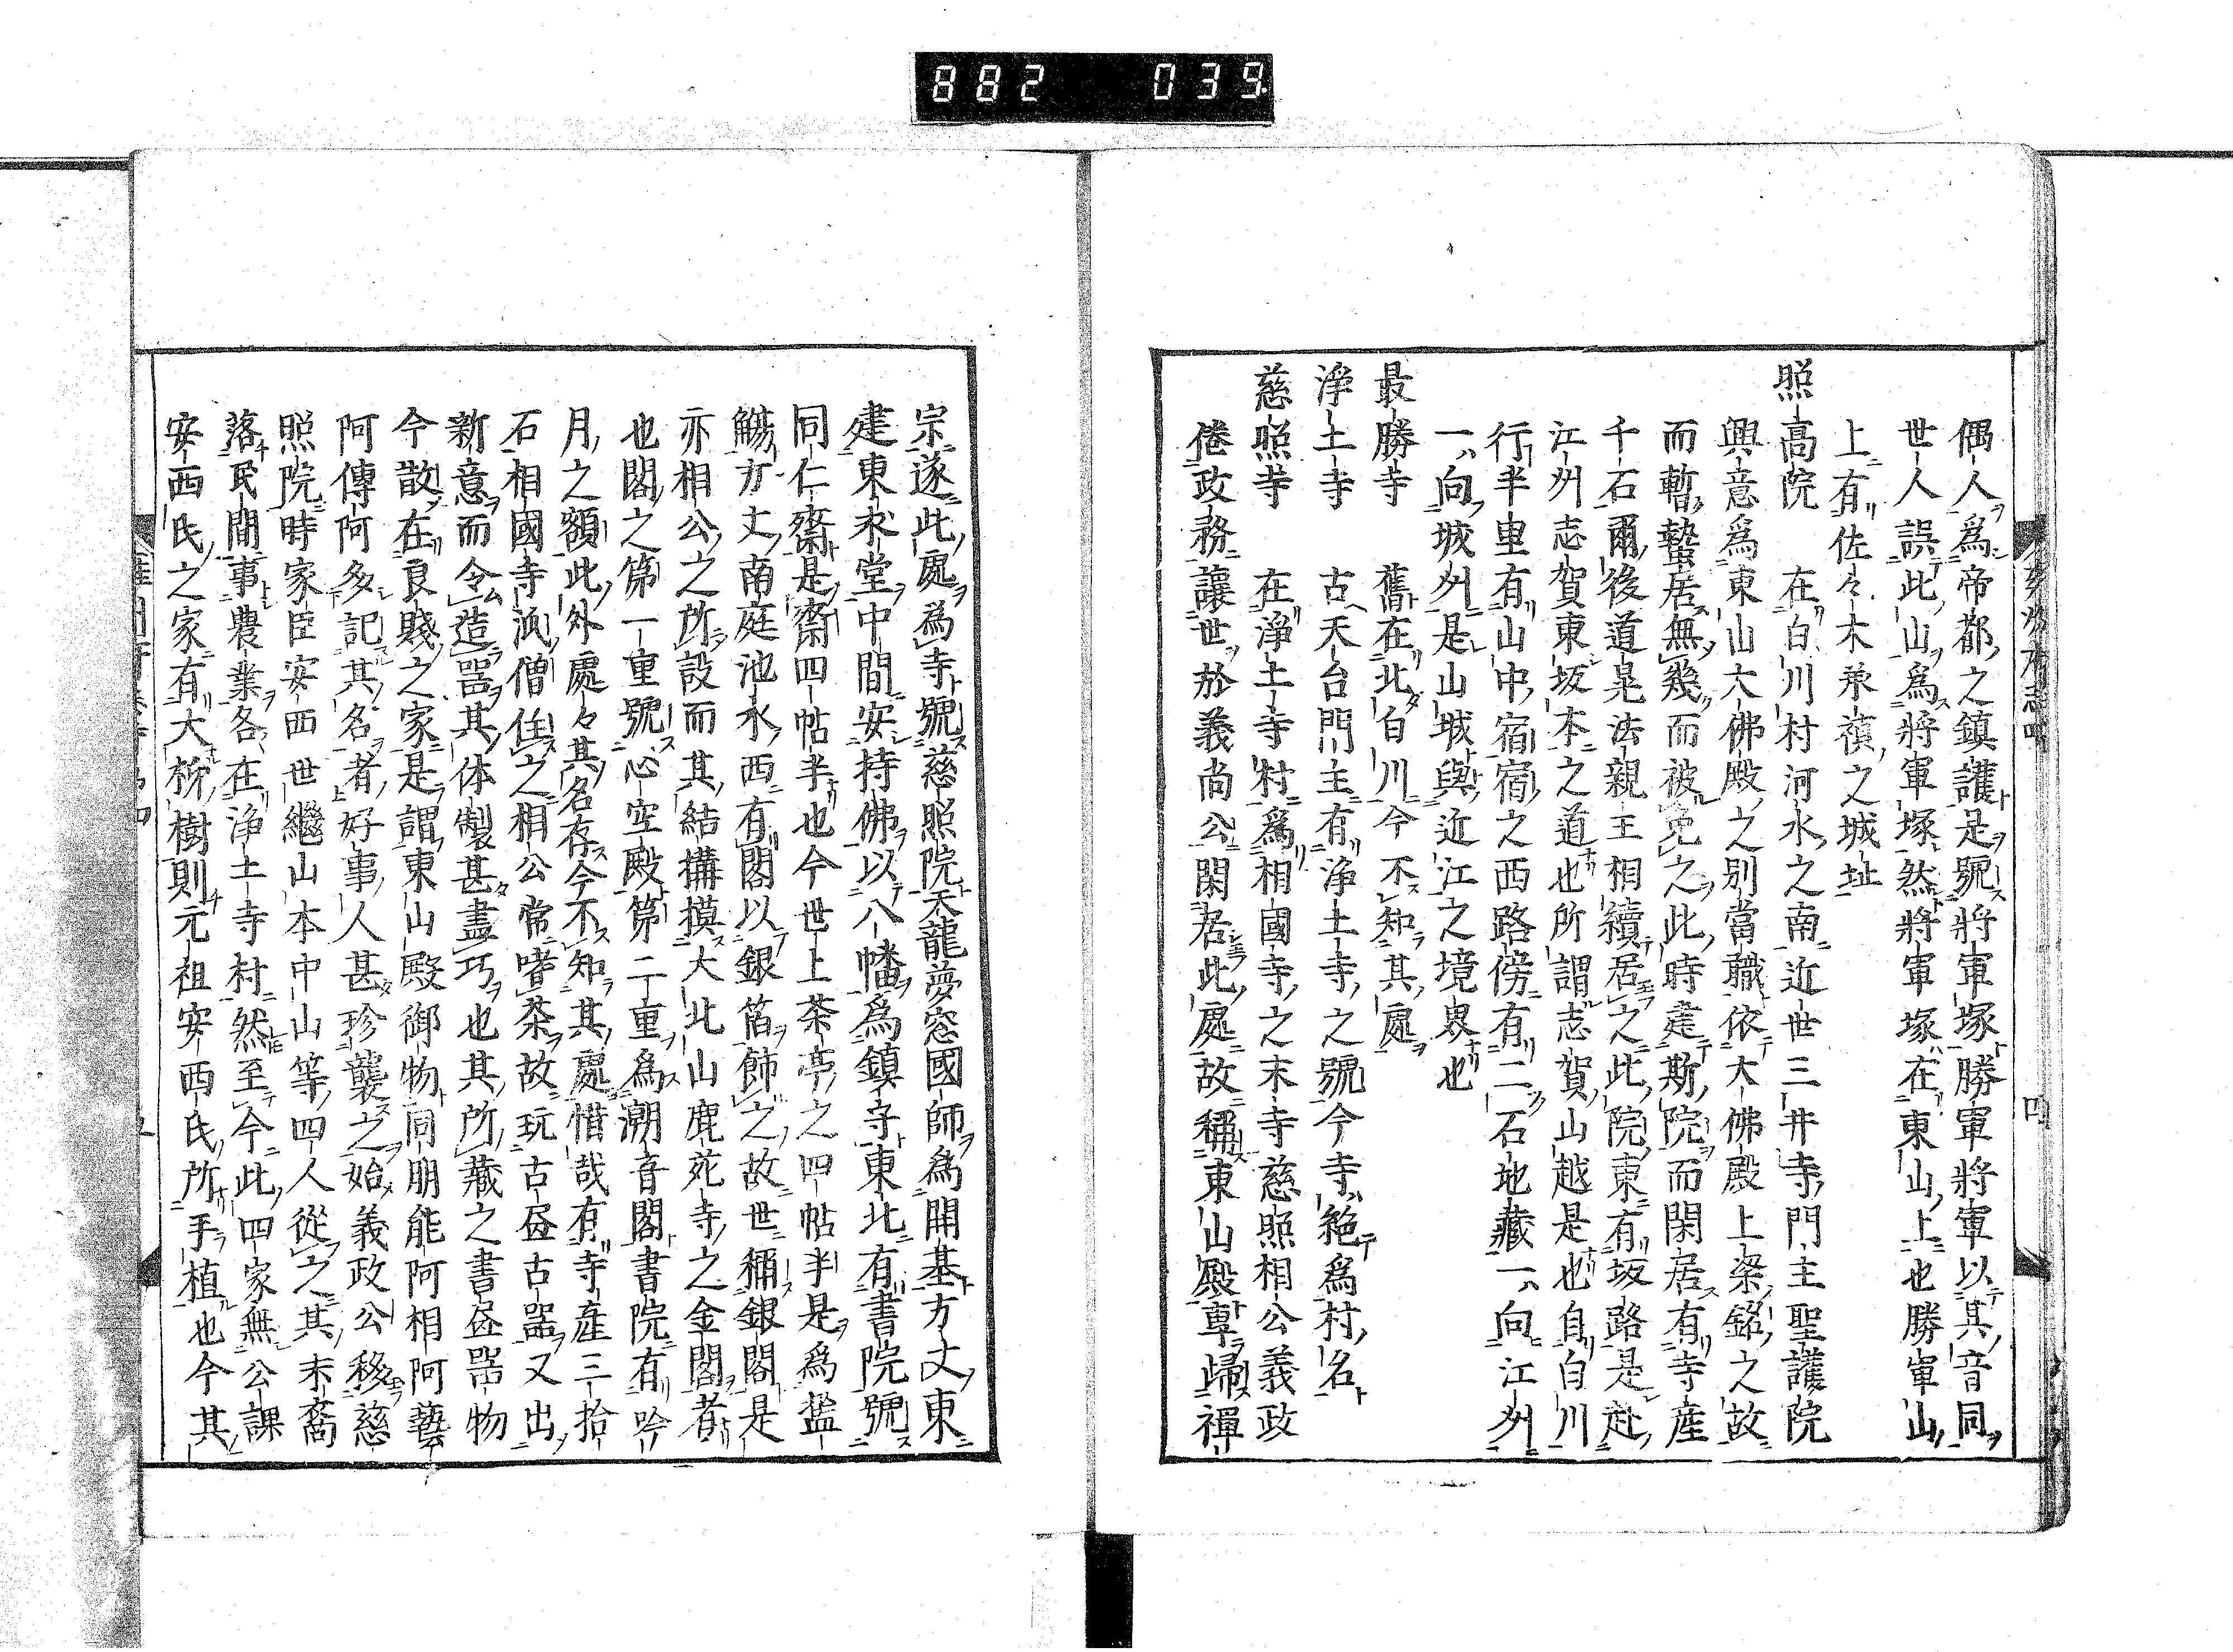 882 039.
偶人爲帝都之鎮護是號將軍塚勝軍將軍以其音同
世人誤此山爲將軍塚然將軍塚在東山上也勝軍山
上有佐々木承禎之城址
照高院 在白川村河水之南近世三井寺門主聖護院
興意爲東山大佛殿之別當職依大佛殿上梁銘之故
而暫蟄居無幾而被免之此時建斯院而閑居有寺産
千石爾後道晃法親王相續居之此院東有坂路是赴
江州志賀東坂本之道也所謂志賀山越是也自白川
行半里有山中宿宿之西路傍有二石地藏一向江州
一向城州是山城與近江之境界也
最勝寺 舊在北白川今不知其處
淨土寺 古天台門主有淨土寺之號今寺絶爲村名
慈照寺 在淨土寺村爲相國寺之末寺慈照相公義政
倦政務讓世於義尚公閑居此處故稱東山殿專歸禪
宗遂此處爲寺號慈照院天龍夢窓國師爲開基方丈東
建東求堂中間安持佛以八幡爲鎮守東北有書院號
同仁齋是齋四帖半也今世上茶亭之四帖半是爲濫
觴方丈南庭池水西有閣以銀箔飾之故世稱銀閣是
亦相公之所設而其結搆摸大北山鹿苑寺之金閣者
也閣之第一重號心空殿第二重爲潮音閣書院有吟
月之額此外處々其名存今不知其處惜哉有寺産三拾
石相國寺派僧住之相公常嗜茶故玩古畫古器又出
新意而令造器其体製甚盡巧也其所藏之書畫器物
今散在良賤之家是謂東山殿御物同朋能阿相阿藝
阿傳阿多記其名者好事人甚珍襲之始義政公移慈
照院時家臣安西世繼山本中山等四人從之其末裔
落民間事農業各在淨土寺村然至今此四家無公課
安西氏之家有大柳樹則元祖安西氏所手植也今其